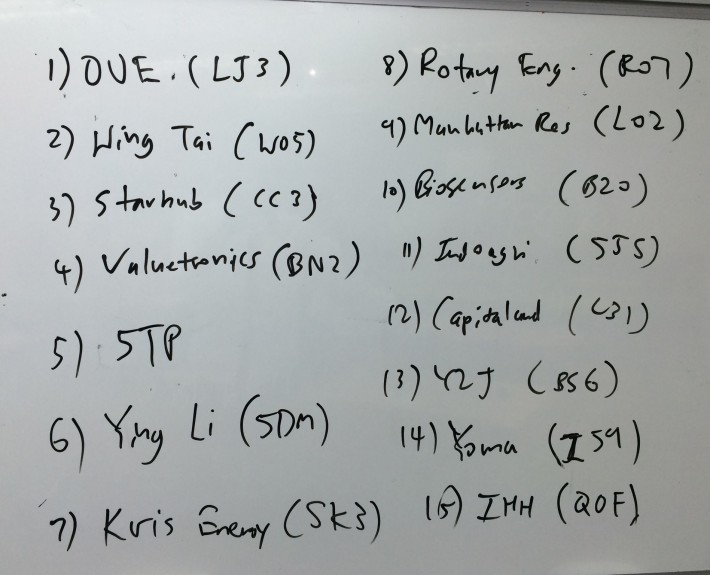 1) OUE. (LJ3)
2) Wing Tai (W05)
3) Starhub (CC3)
4) Valuetronics (BN2)
5) 5TP
6) Ying Li (5DM)
7) Kris Energy (SK3)
8) Rotary Eng. (R07)
9) Manhattan Res (L02)
10) Biosensors (B20)
11) Indoagri (5JS)
12) Capitaland (C31)
13) YZJ (BS6)
14) Yoma (Z59)
15) IHH (Q0F)